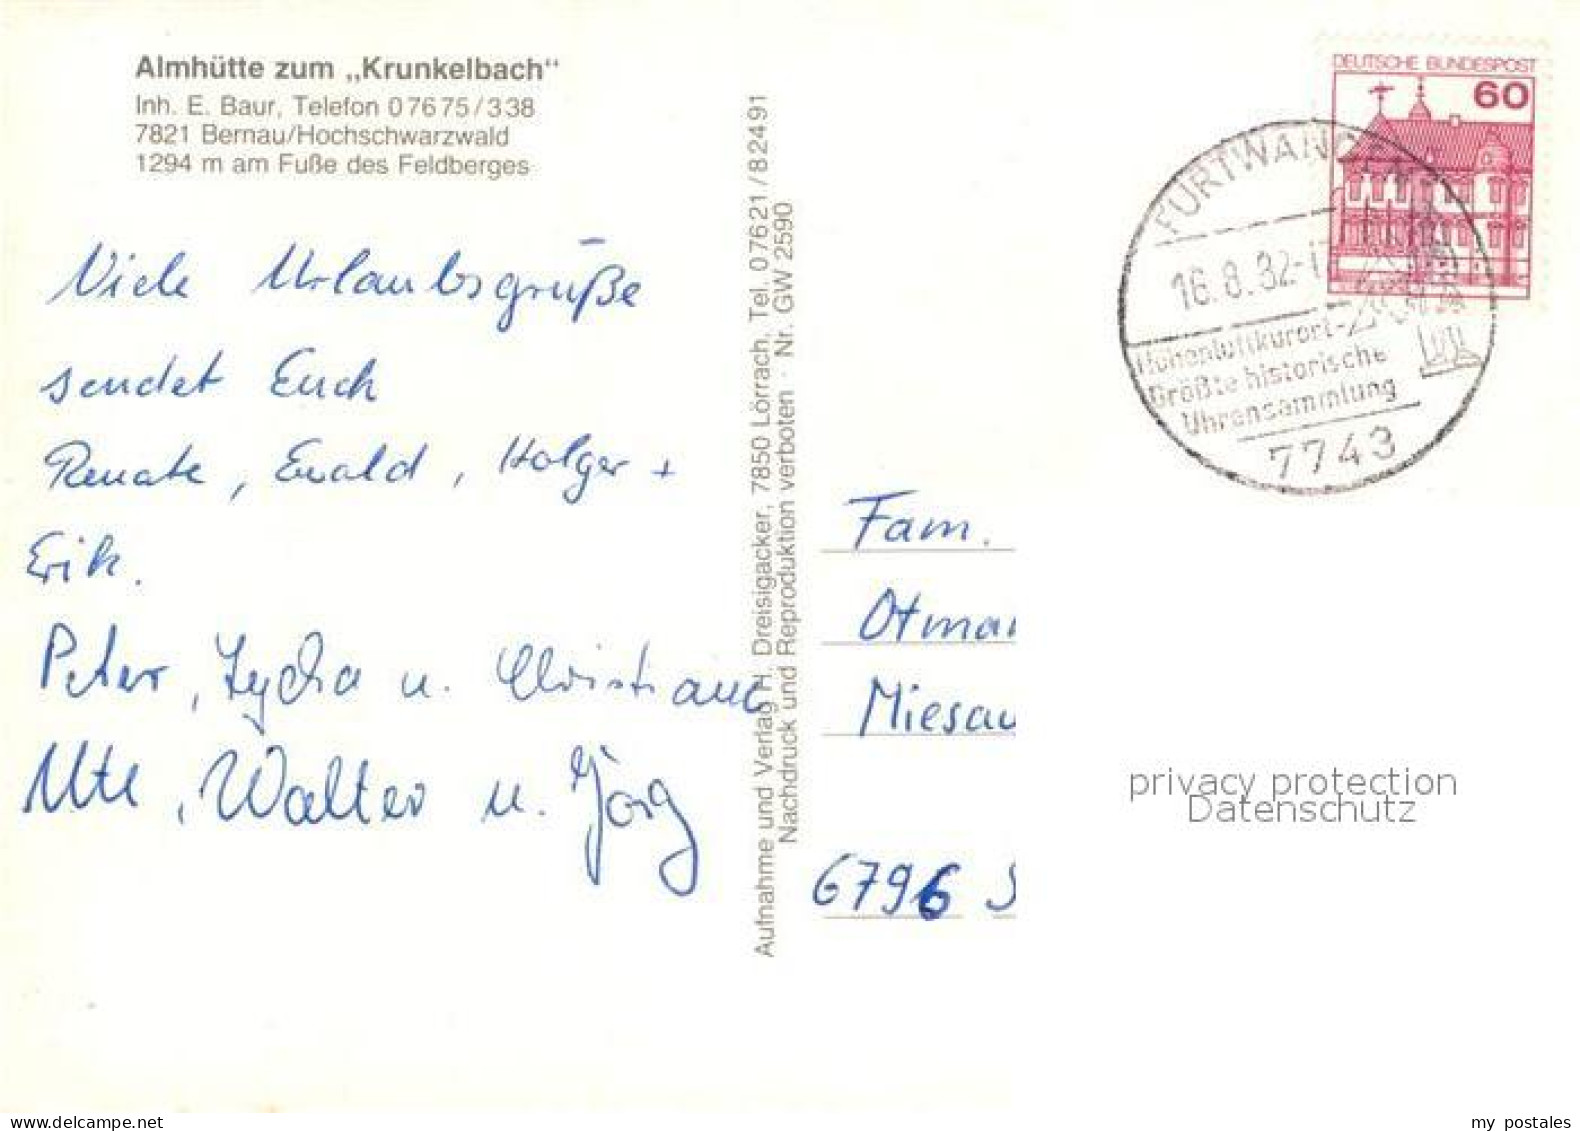 Almhütte zum „Krunkelbach“
Inh. E. Baur, Telefon 0 76 75 / 3 38
7821 Bernau/Hochschwarzwald
1294 m am Fuße des Feldberges
Viele Urlaubsgrüße
sendet Euch
Renate, Ewald, Holger +
Erik.
Peter, Lydia u. Christiane
Ute, Walter u. Jörg
Aufnahme und Verlag H. Dreisigacker, 7850 Lörrach, Tel. 0 76 21 / 8 24 91
Nachdruck und Reproduktion verboten · Nr. GW 2590
DEUTSCHE BUNDESPOST
60
FURTWANGEN
16.8.82-1
Höhenluftkurort-
Größte historische
Uhrensammlung
7743
Fam.
Otmar
Miesau
6796 S
privacy protection
Datenschutz
my postales